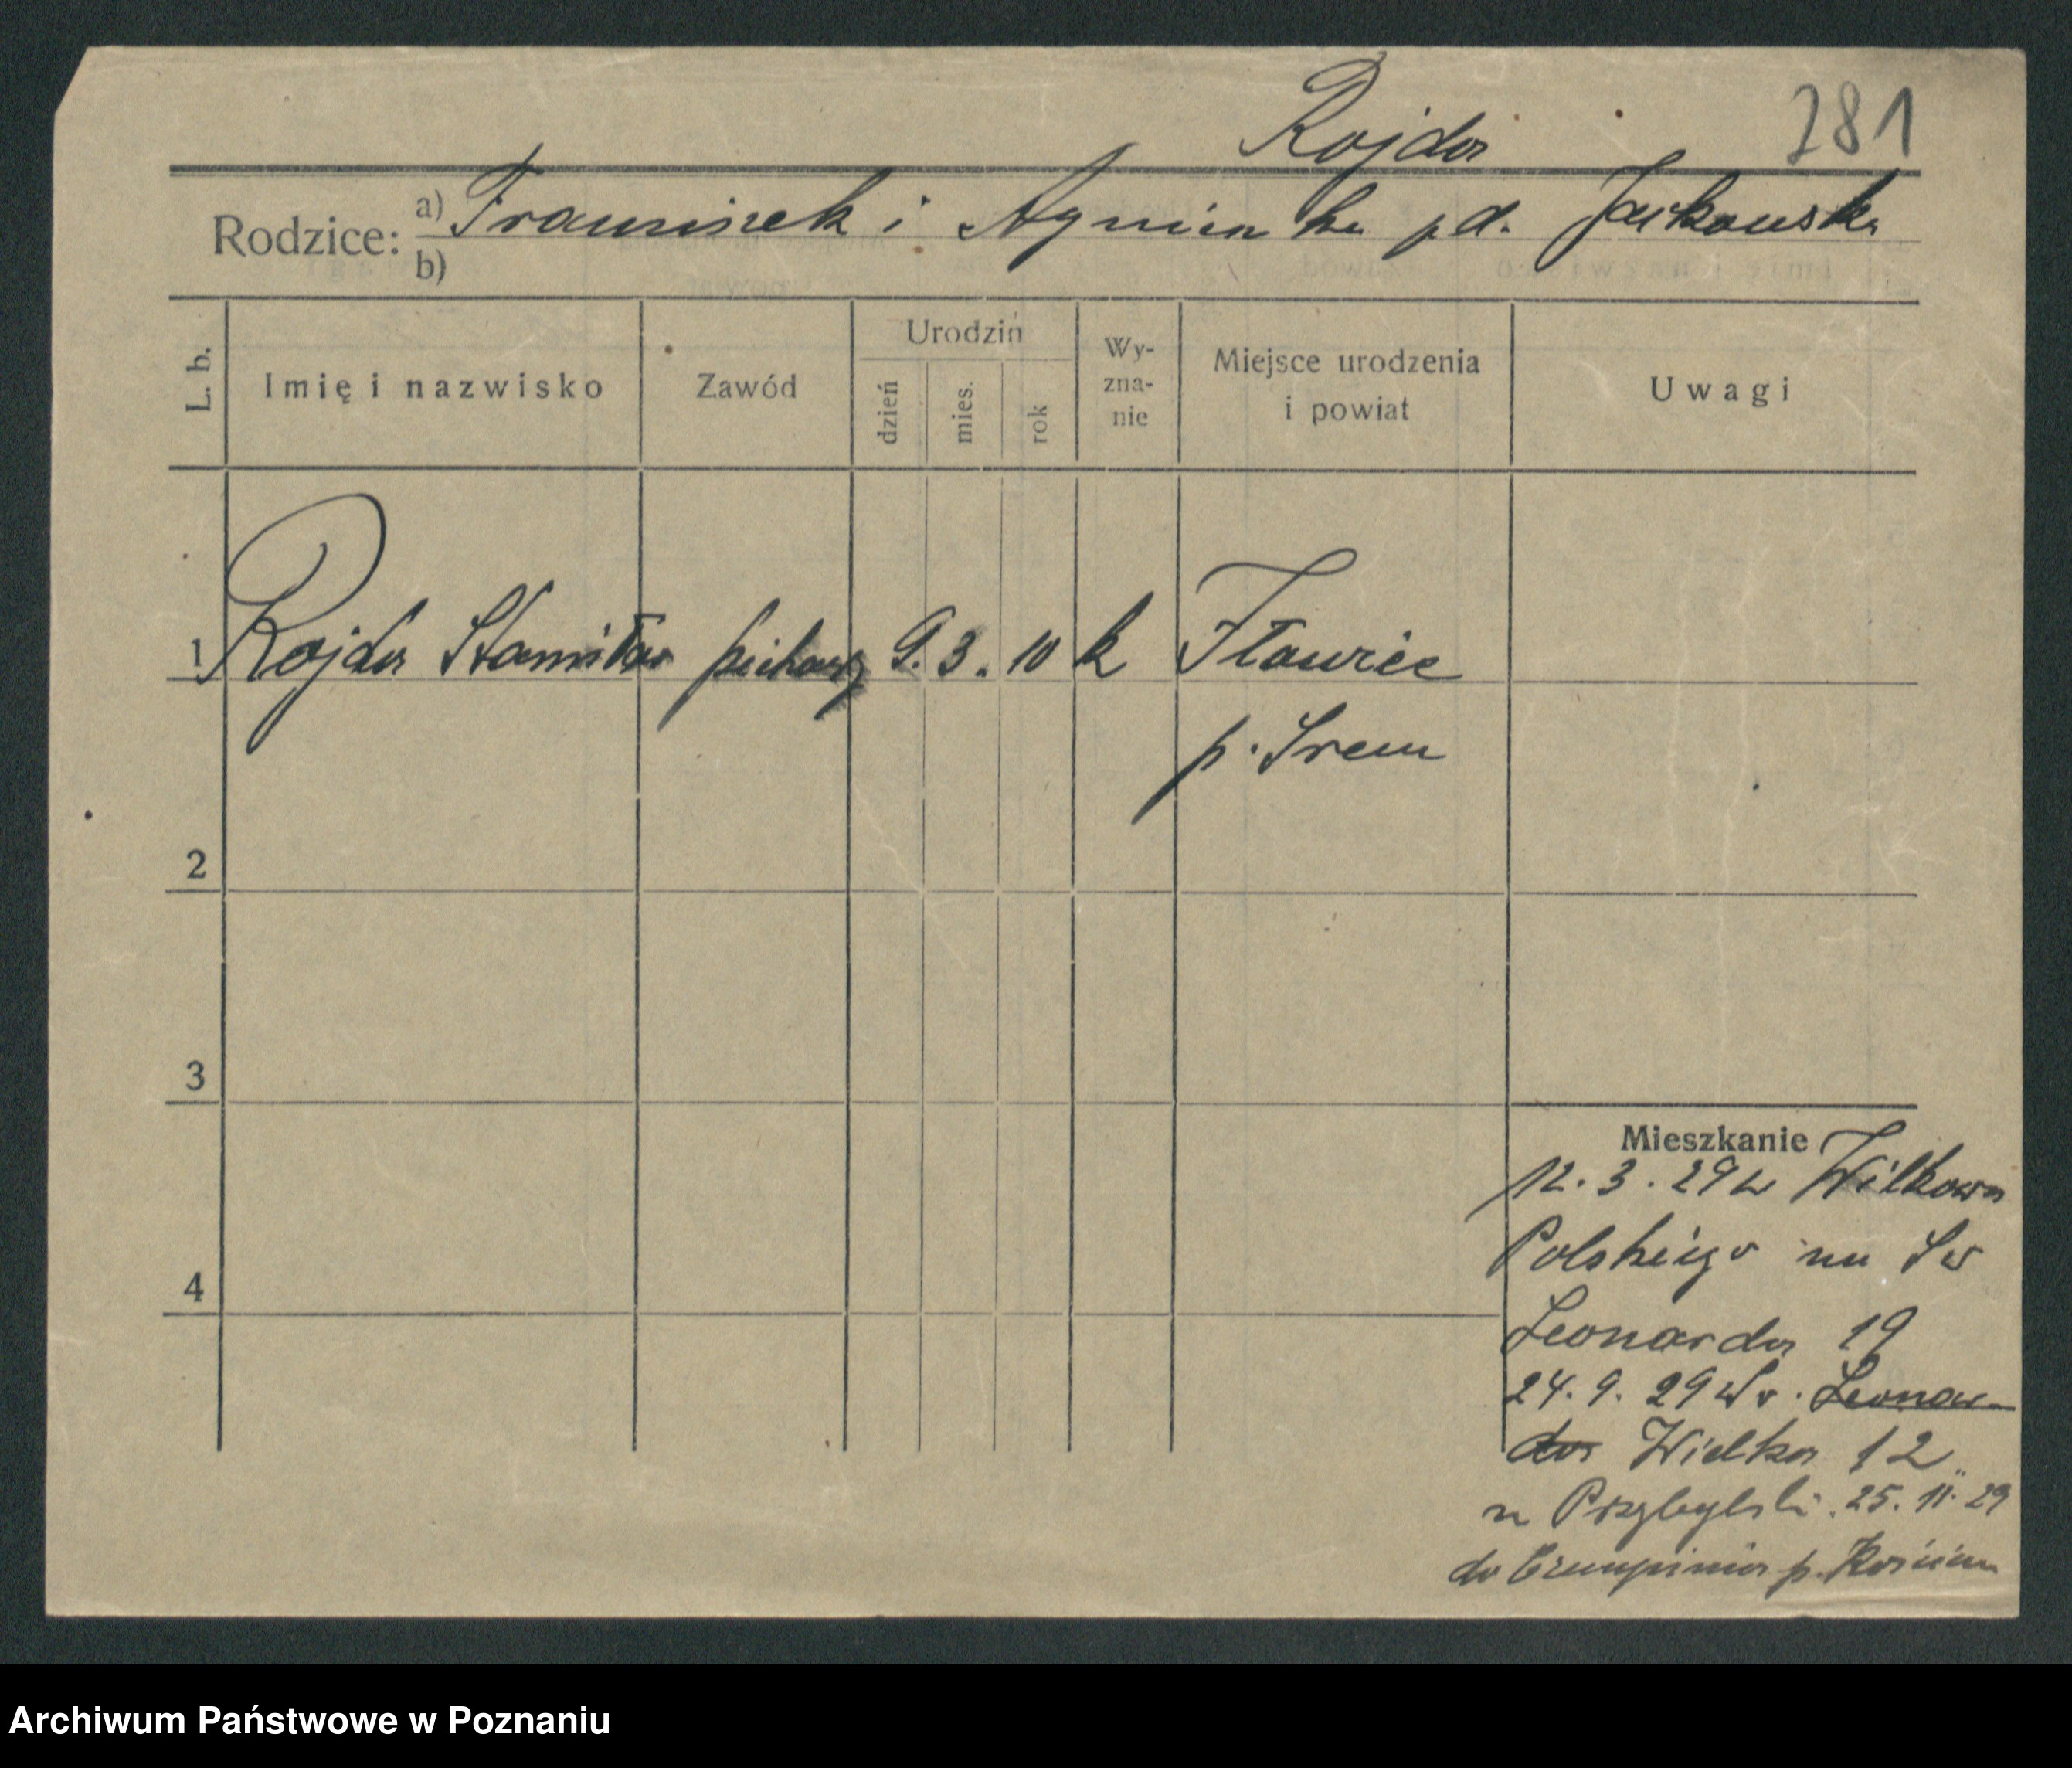 Rojda 281
Rodzice: a) Franciszek i Agnieszka pd. Jackowska
b)
L. b. Imię i nazwisko Zawód Urodzin dzień mies. rok Wy-zna-nie Miejsce urodzenia i powiat Uwagi
1 Rojda Stanisław piekarz 9. 3. 10 k Iłowiec
p. Śrem
2
3
Mieszkanie
12. 3. 29 z Wilkowa
Polskiego na Św
4
Leonarda 19
24. 9. 29 Św. Leonar-
da Wielka 12
u Przybylski. 25. 11. 29
do Czempinia p. Kościan
Archiwum Państwowe w Poznaniu